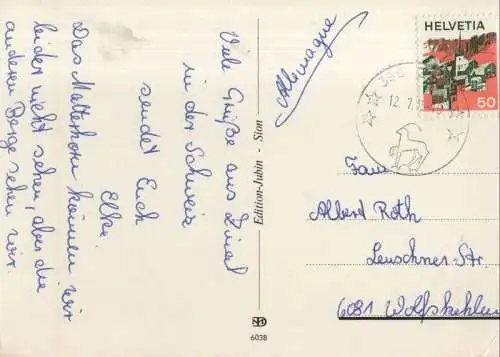 Viele Grüße aus Zinal
in der Schweiz
sendet Euch
Elke.
Das Matterhorn können wir
leider nicht sehen, aber die
anderen Berge sehen wir.
Edition-Jubin - Sion
6038
Allemagne
HELVETIA
50
12. 7.
Fam.
Albert Roth
Leuschner-Str.
6081 Wolfskehlen